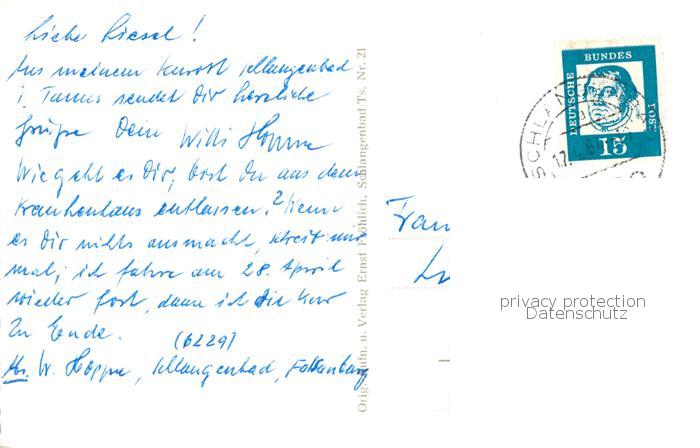 Liebe Liesel!
Aus meinem Kurort Schlangenbad
i. Taunus sendet Dir herzliche
Grüße Dein Willi Hoppe
Wie geht es Dir, bist Du aus dem
Krankenhaus entlassen? Wenn
es Dir nichts ausmacht, schreib mir
mal, ich fahre am 28. April
wieder fort, dann ist die Kur
zu Ende.
(6229)
Abs. W. Hoppe, Schlangenbad, Falkenberg
Orig.-Aufn. u. Verlag Ernst Fröhlich, Schlangenbad Ts. Nr. 21
DEUTSCHE BUNDES POST
15
SCHLAN
17.4.6
Frau
privacy protection
Datenschutz